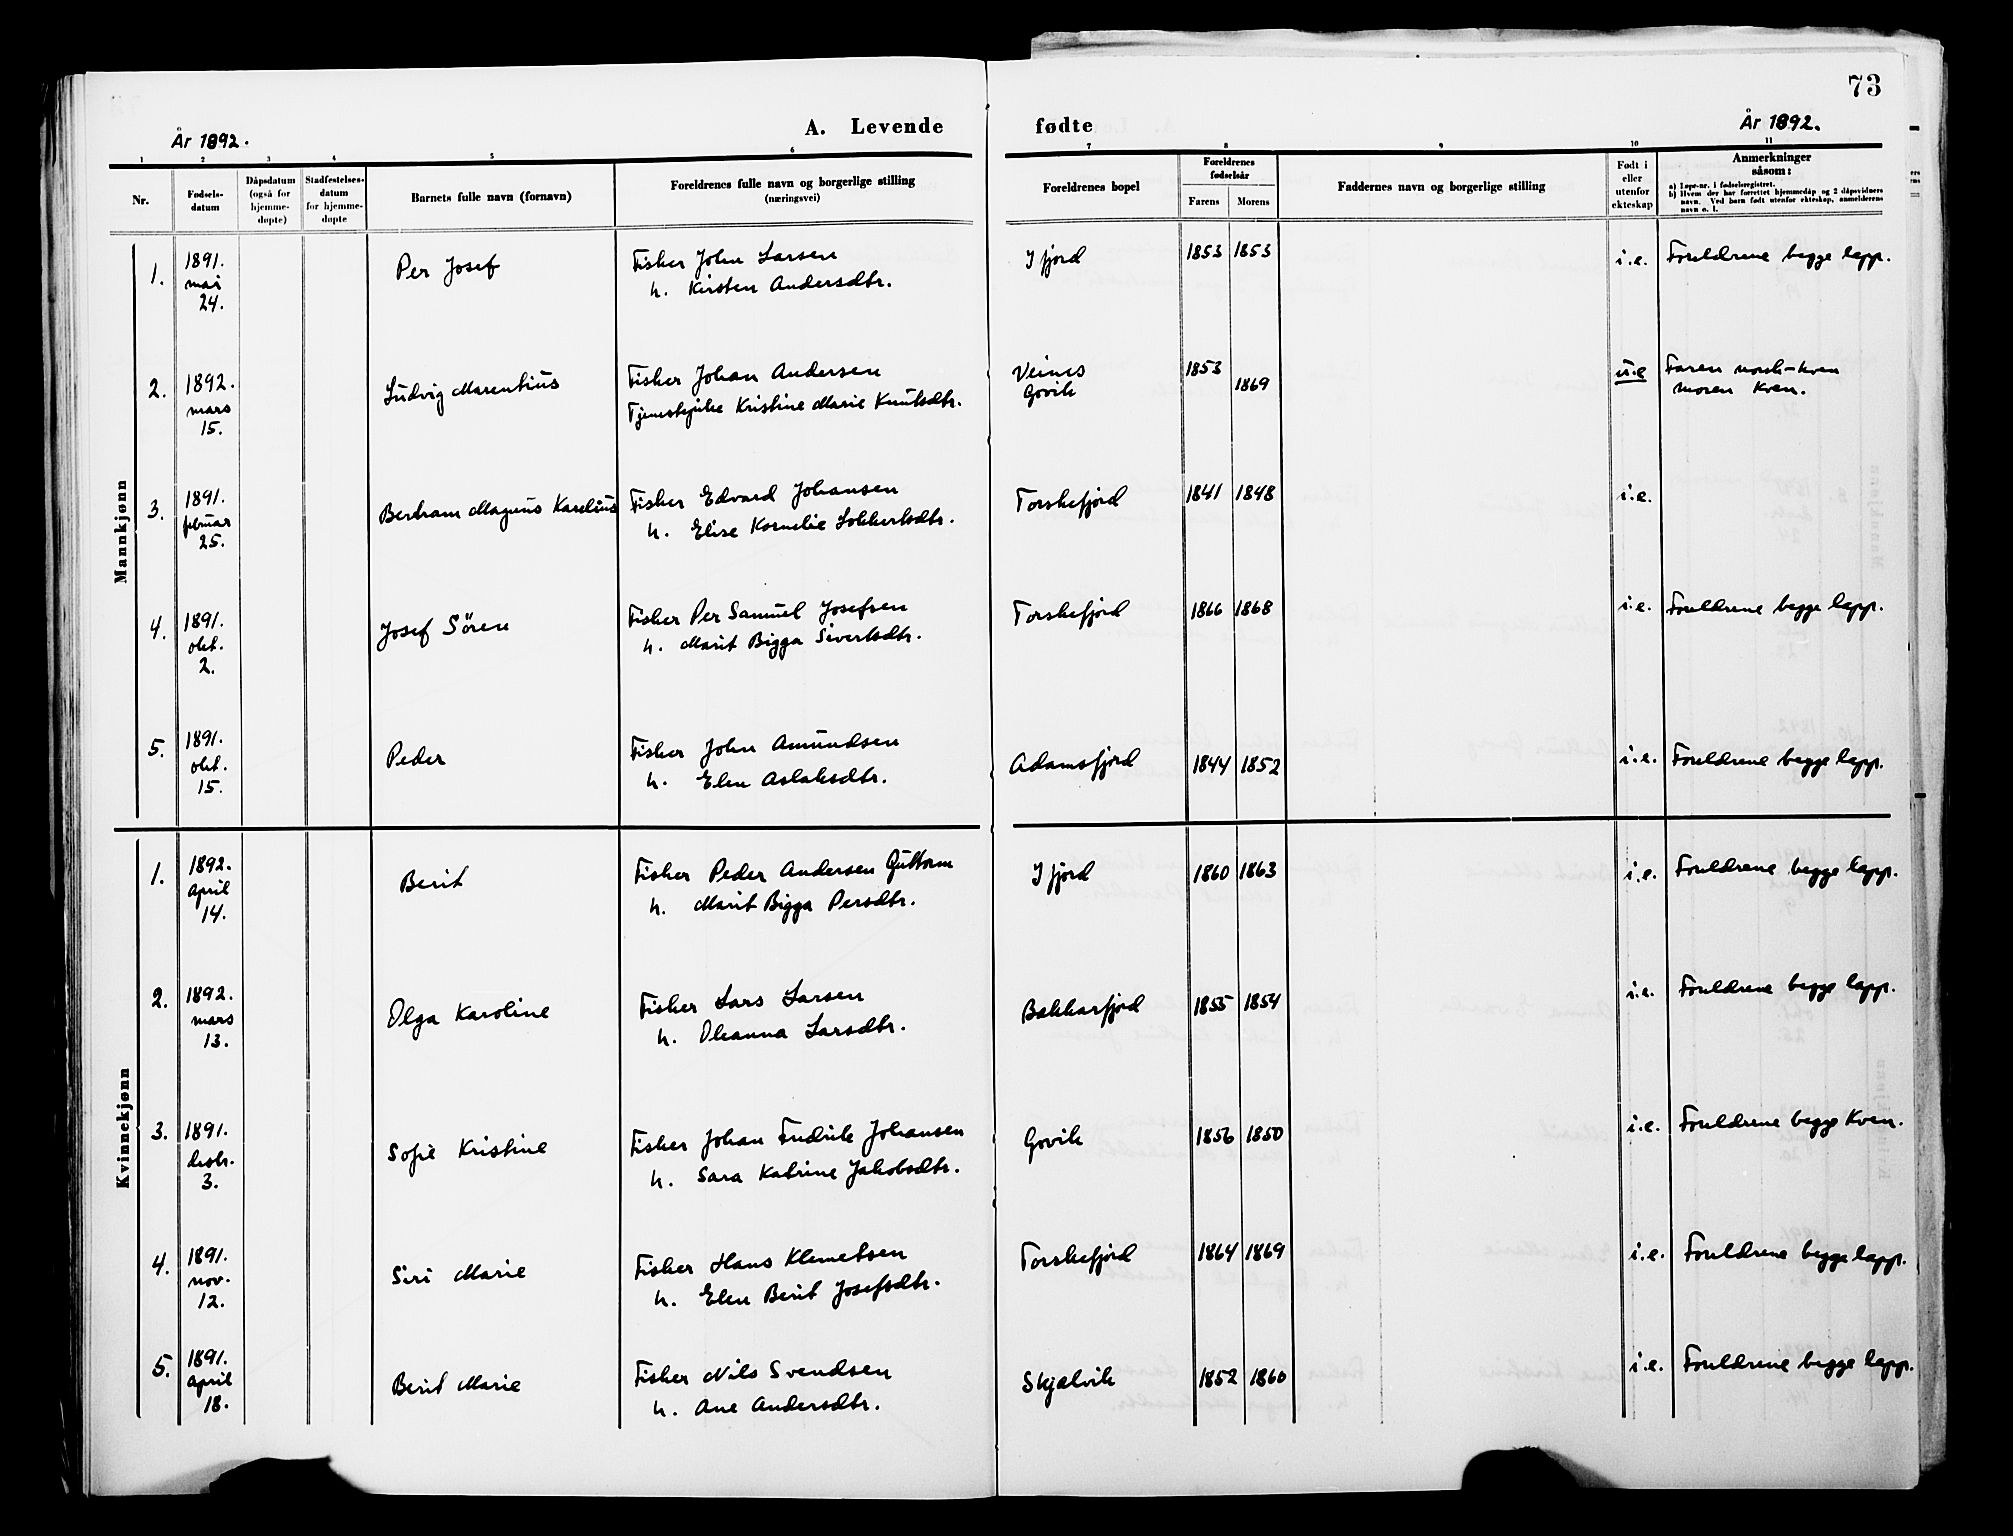 73
År 1892.
A. Levende fødte
År 1892.
1 2 3 4 5 6 7 8 9 10 11
Nr.
Fødsels-
datum
Dåpsdatum
(også for
hjemme-
døpte)
Stadfestelses-
datum
for hjemme-
døpte
Barnets fulle navn (fornavn)
Foreldrenes fulle navn og borgerlige stilling
(næringsvei)
Foreldrenes bopel
Foreldrenes
fødselsår
Farens Morens
Faddernes navn og borgerlige stilling
Født i
eller
utenfor
ekteskap
Anmerkninger
såsom:
a) Løpe-nr. i fødselsregistret.
b) Hvem der har forrettet hjemmedåp og 2 dåpsvidners
navn. Ved barn født utenfor ekteskap, anmelderens
navn o. l.
Mannkjønn
1.
1891.
mai
24.
Per Josef
Fisker John Larsen
h. Kirsten Andersdtr.
Ifjord
1853 1853
i.e.
Foreldrene begge lapp.
2.
1892.
mars
15.
Ludvig Marentius
Fisker Johan Andersen
Tjenestepike Kristine Marie Knutsdtr.
Veines
Govik
1853
1869
u.e
Faren norsk-kven
moren Kven.
3.
1891.
februar
25.
Bertram Magnus Karelius
Fisker Edvard Johansen
h. Elise Kornelie Lokkertsdtr.
Torskefjord
1841 1848
i.e.
4.
1891.
okt.
2.
Josef Sören
Fisker Per Samuel Josefsen
h. Marit Bigga Sivertsdtr.
Torskefjord
1866 1868
i.e.
Foreldrene begge lapp.
5.
1891.
okt.
15.
Peder
Fisker John Amundsen
h. Elen Aslaksdtr.
Adamsfjord
1844 1852
i.e.
Foreldrene begge lapp.
Kvinnekjønn
1.
1892.
april
14.
Berit
Fisker Peder Andersen Guttorm
h. Marit Bigga Persdtr.
Ifjord
1860 1863
i.e.
Foreldrene begge lapp.
2.
1892.
mars
13.
Olga Karoline
Fisker Lars Larsen
h. Oleanna Larsdtr.
Bakkarfjord
1855 1854
i.e.
Foreldrene begge lapp.
3.
1891.
desbr.
3.
Sofie Kristine
Fisker Johan Fredrik Johansen
h. Sara Katrine Jakobsdtr.
Govik
1856 1850
i.e.
Foreldrene begge Kven.
4.
1891.
nov.
12.
Siri Marie
Fisker Hans Klemetsen
h. Elen Berit Josefsdtr.
Torskefjord
1864 1869
i.e.
Foreldrene begge lapp.
5.
1891.
april
18.
Berit Marie
Fisker Nils Svendsen
h. Ane Andersdtr.
Skjælvik
1852 1860
i.e.
Foreldrene begge lapp.